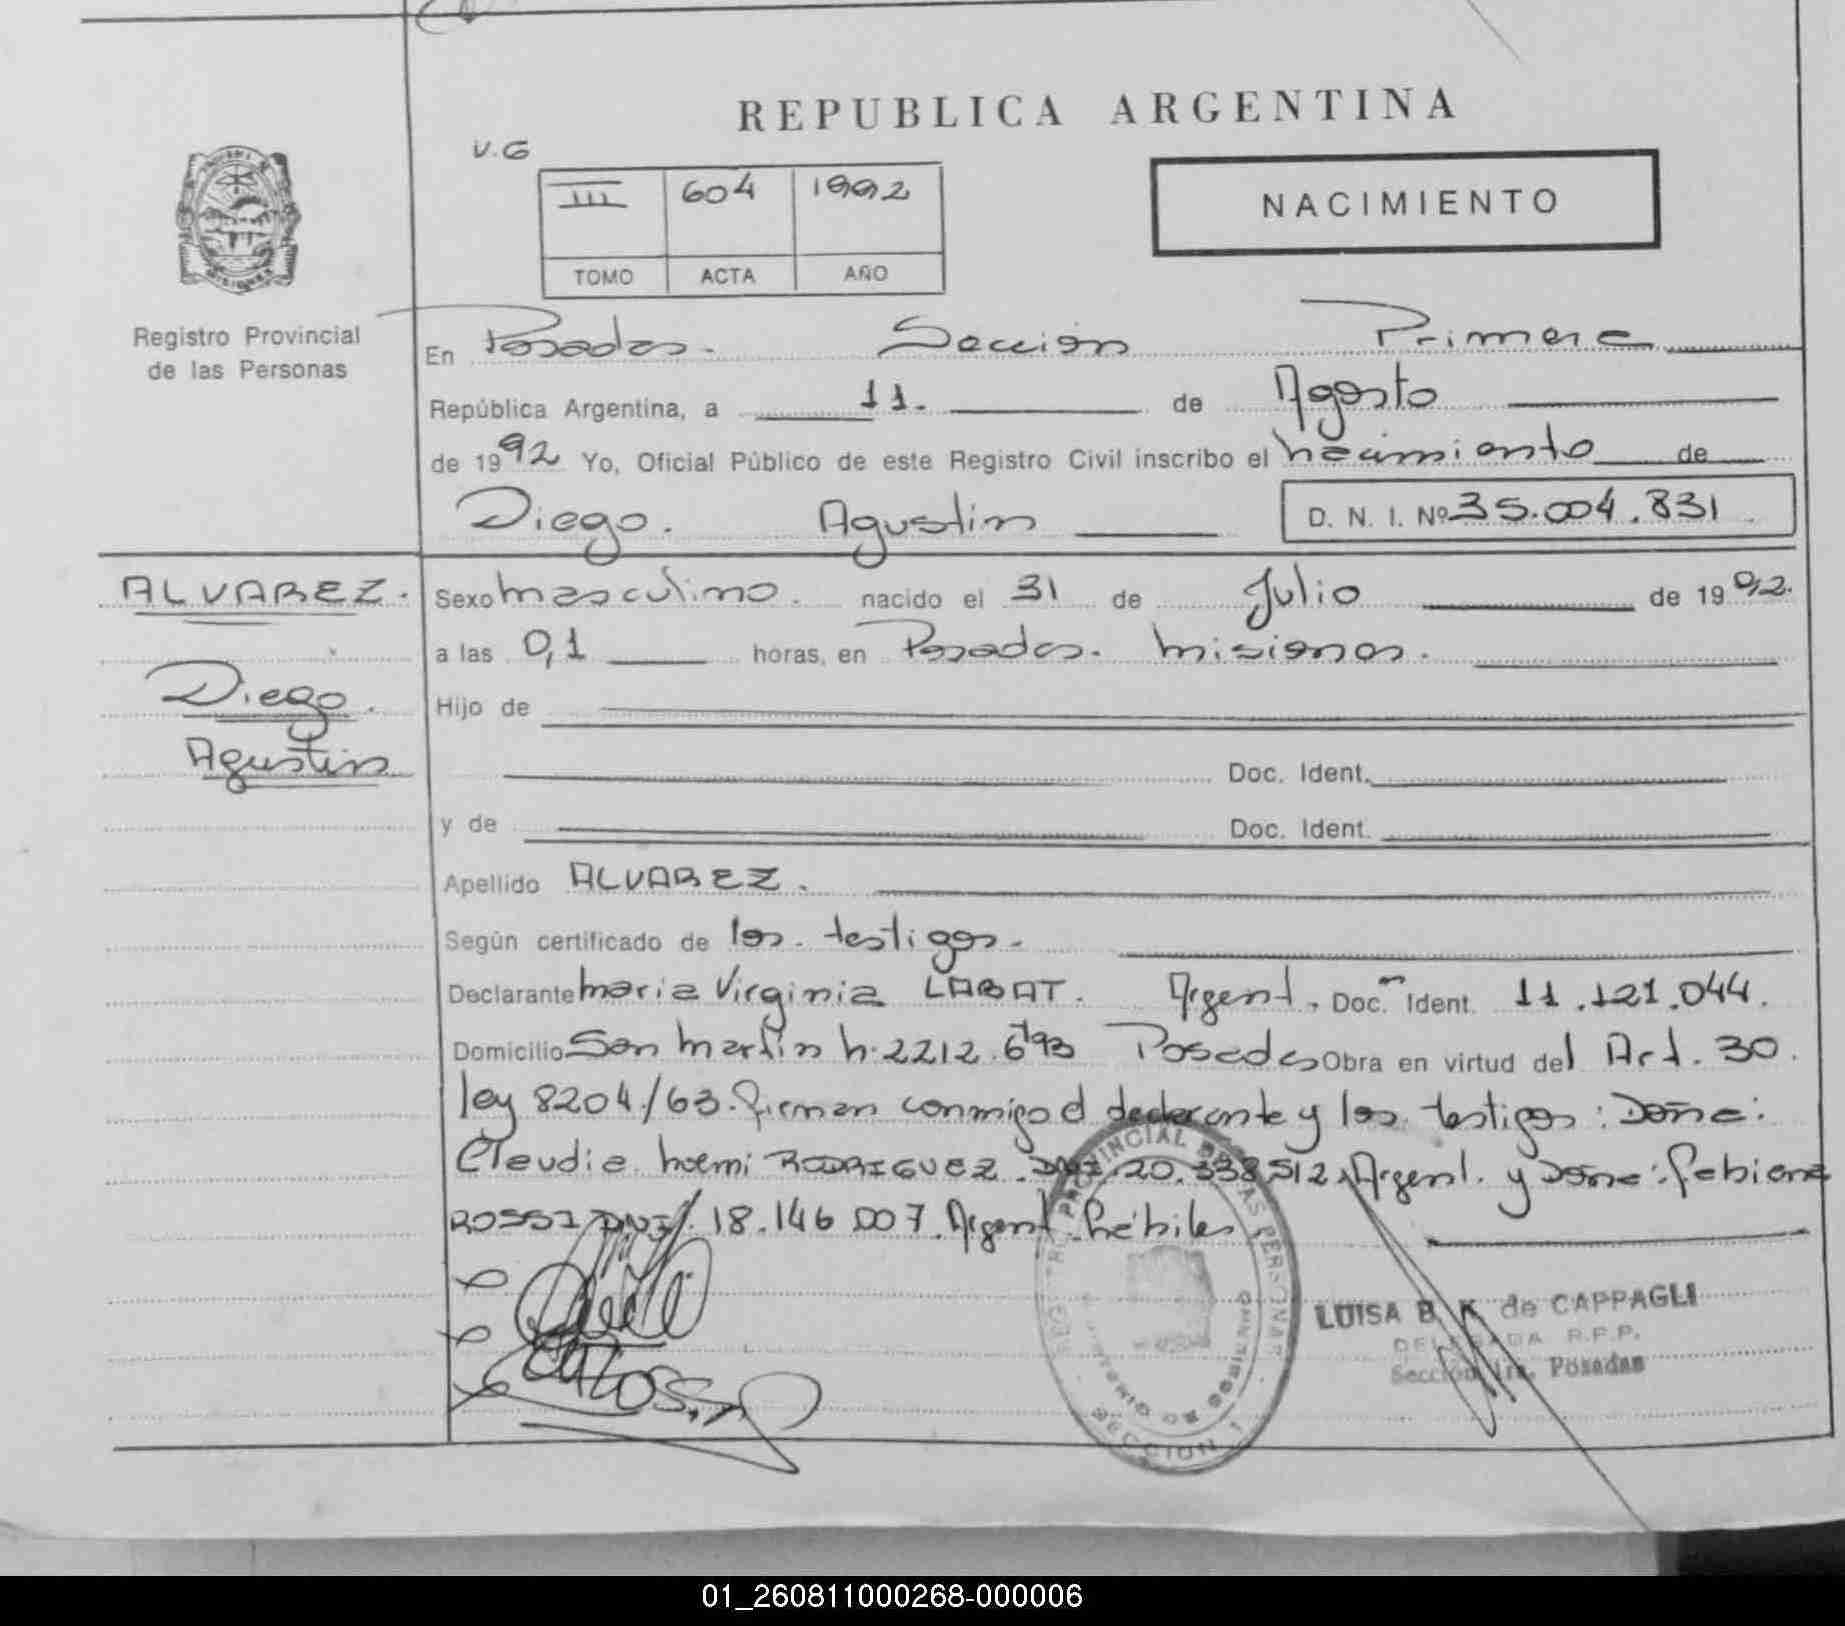 REPUBLICA ARGENTINA
V.G
III 604 1992
TOMO ACTA AÑO
NACIMIENTO
Registro Provincial
de las Personas
En Posadas. Sección Primera
República Argentina, a 11. de Agosto
de 1992 Yo, Oficial Público de este Registro Civil inscribo el nacimiento de
Diego. Agustin D. N. I. Nº 35.004.831
ALVAREZ.
Diego.
Agustin
Sexo masculino. nacido el 31 de Julio de 1992.
a las 0,1 horas, en Posadas. Misiones.
Hijo de
Doc. Ident.
y de Doc. Ident.
Apellido ALVAREZ.
Según certificado de los testigos.
Declarante Maria Virginia LABAT. Argent. Doc. Ident. 11.121.044.
Domicilio San Martin n. 2212 Posadas Obra en virtud del Art. 30.
ley 8204/63. firman conmigo el declarante y los testigos: Doña:
Claudia Noemi RODRIGUEZ. DNI. 20.338.512. Argent. y Doña: Fabiana
ROSSI DNI. 18.146.007. Argent. hábiles
REGISTRO PROVINCIAL DE LAS PERSONAS
SECCION 1
LUISA B. K. de CAPPAGLI
DELEGADA R.P.P.
Sección 1ra. Posadas
01_260811000268-000006